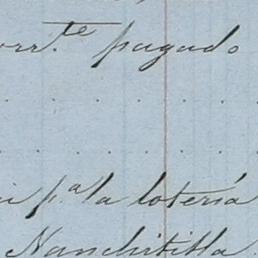 orr.te pagado
. . . . . . . . .
pa la lotería
Nanchititla